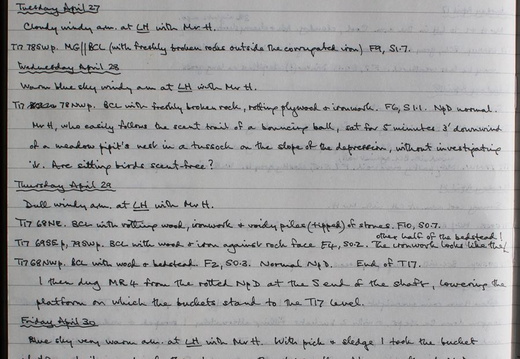 Tuesday April 27
Cloudy windy a.m. at LH with Mr H.
T17 78SWp. MG//BCL (with freshly broken rocks outside the corrugated iron) F9, S1.7.
Wednesday April 28
Warm blue sky windy a.m. at LH with Mr H.
T17 78NWp. BCL with freshly broken rock, rotting plywood & ironwork. F6, S1.1. NpD normal.
Mr H, who easily follows the scent trail of a bouncing ball, sat for 5 minutes 3' downwind
of a meadow pipit's nest in a tussock on the slope of the depression, without investigating
it. Are sitting birds scent-free?
Thursday April 29
Dull windy a.m. at LH with Mr H.
T17 68NE. BCL with rotting wood, ironwork & voidy piles (tipped) of stones. F10, S0.7.
other half of the bedstead!
T17 69SEp, 79SWp. BCL with wood & iron against rock face F4, S0.2. The ironwork looks like the
T17 68NWp. BCL with wood & bedstead. F2, S0.3. Normal NpD. End of T17.
I then dug MR4 from the rotted NpD at the S end of the shaft, lowering the
platform on which the buckets stand to the T17 level.
Friday April 30
Blue sky very warm a.m. at LH with Mr H. With pick & sledge I took the bucket